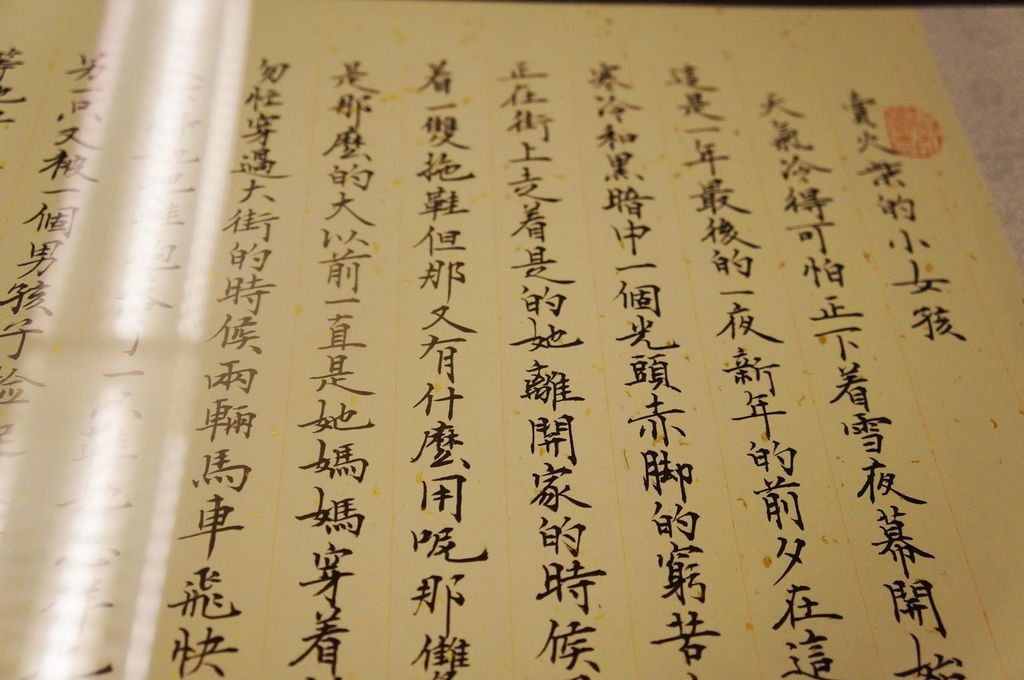 賣火柴的小女孩
天氣冷得可怕正下着雪夜幕開始
這是一年最後的一夜新年的前夕在這
寒冷和黑暗中一個光頭赤脚的窮苦
正在街上走着是的她離開家的時候
着一雙拖鞋但那又有什麼用呢那
是那麼的大以前一直是她媽媽穿着
匆忙穿過大街的時候兩輛馬車飛快
另一只又被一個男孩子